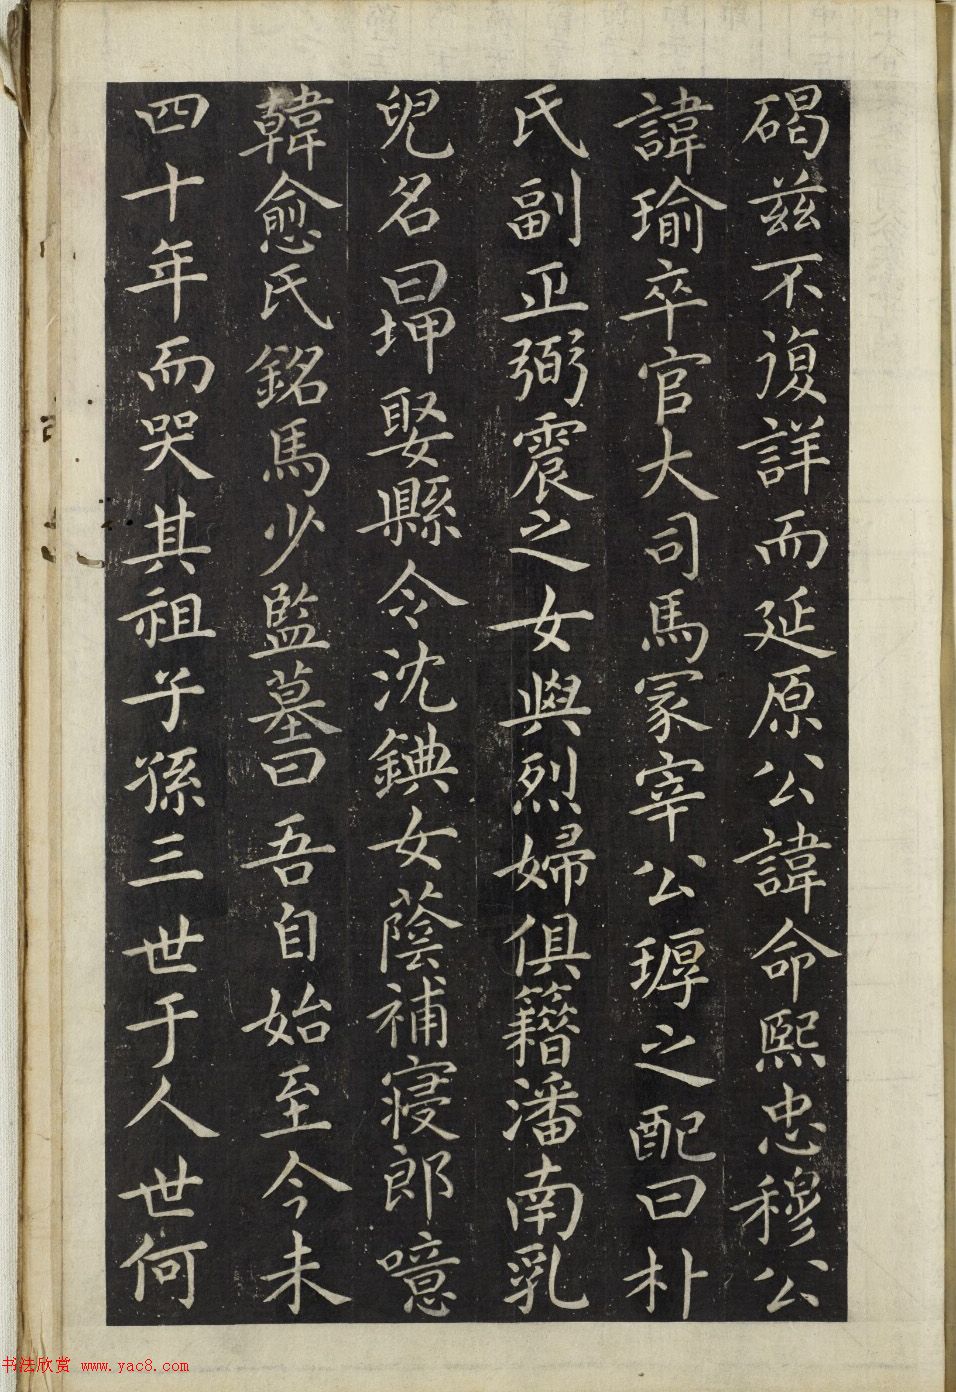 碣兹不復詳而延原公諱命熙忠穆公
諱瑜卒官大司馬冢宰公㻞之配曰朴
氏副正弼震之女與烈婦俱籍潘南乳
兒名曰坤娶縣令沈錪女蔭補寝郎噫
韓愈氏銘馬少監墓曰吾自始至今未
四十年而哭其祖子孫三世于人世何
书法欣赏 www.yac8.com